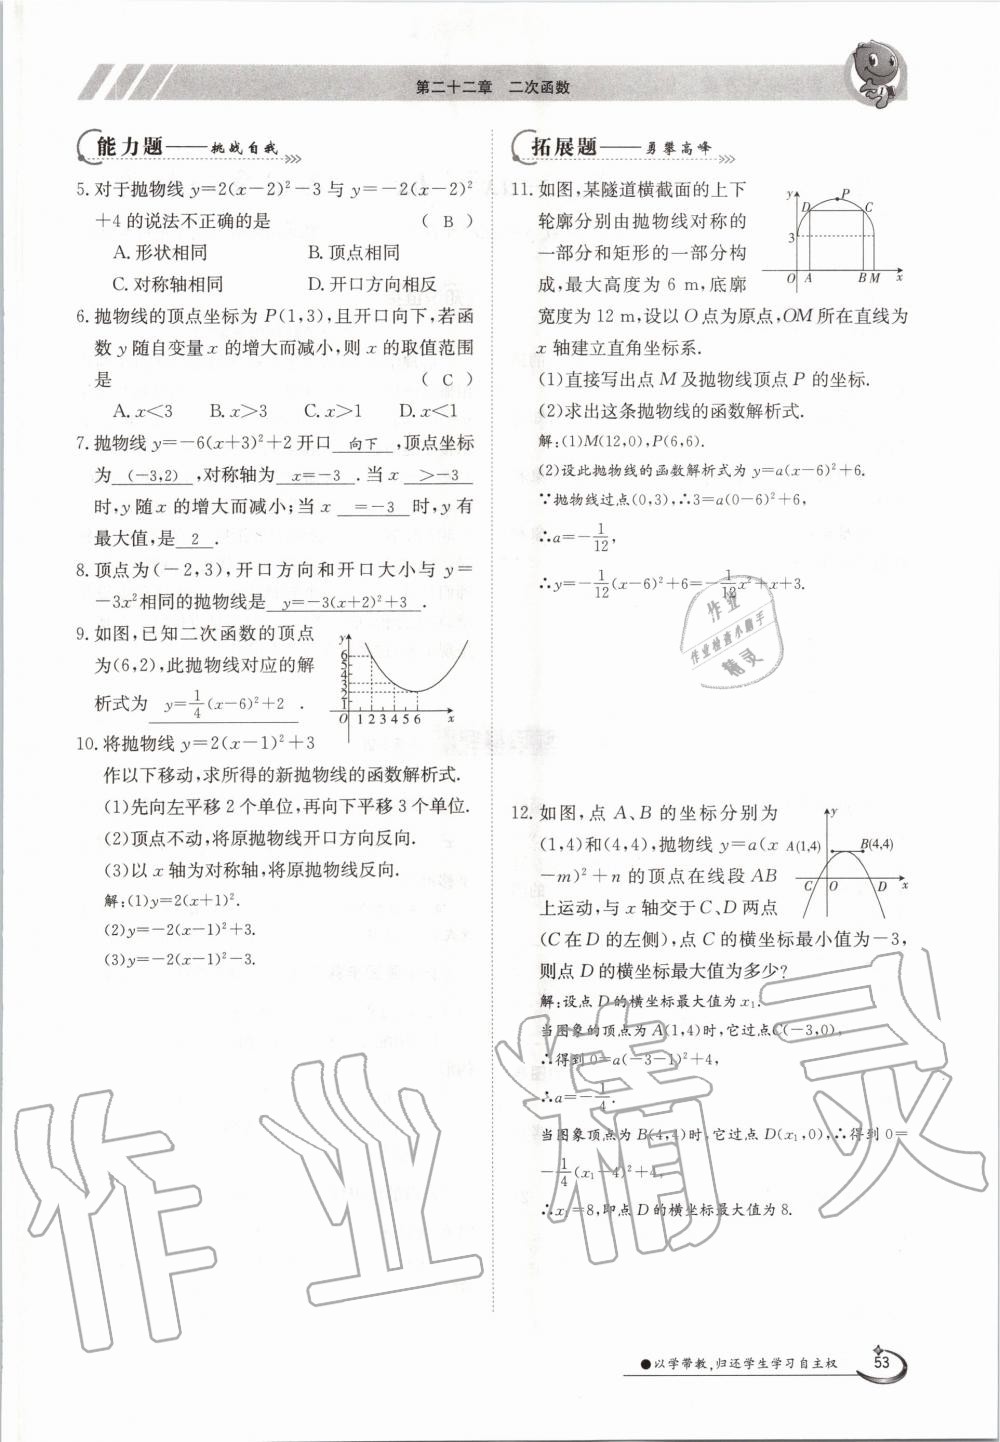 第二十二章 二次函数
能力题——挑战自我
5.对于抛物线 y=2(x-2)²-3 与 y=-2(x-2)²
+4 的说法不正确的是 ( B )
A.形状相同 B.顶点相同
C.对称轴相同 D.开口方向相反
6.抛物线的顶点坐标为 P(1,3),且开口向下,若函
数 y 随自变量 x 的增大而减小,则 x 的取值范围
是 ( C )
A.x<3 B.x>3 C.x>1 D.x<1
7.抛物线 y=-6(x+3)²+2 开口 向下 ,顶点坐标
为 (-3,2) ,对称轴为 x=-3 .当 x >-3
时,y 随 x 的增大而减小;当 x =-3 时,y 有
最大值,是 2 .
8.顶点为(-2,3),开口方向和开口大小与 y=
-3x²相同的抛物线是 y=-3(x+2)²+3 .
9.如图,已知二次函数的顶点
为(6,2),此抛物线对应的解
析式为 y=1/4(x-6)²+2 .
y
6
5
4
3
2
1
O 1 2 3 4 5 6 x
10.将抛物线 y=2(x-1)²+3
作以下移动,求所得的新抛物线的函数解析式.
(1)先向左平移 2 个单位,再向下平移 3 个单位.
(2)顶点不动,将原抛物线开口方向反向.
(3)以 x 轴为对称轴,将原抛物线反向.
解:(1)y=2(x+1)².
(2)y=-2(x-1)²+3.
(3)y=-2(x-1)²-3.
拓展题——勇攀高峰
11.如图,某隧道横截面的上下
轮廓分别由抛物线对称的
一部分和矩形的一部分构
成,最大高度为 6 m,底廓
宽度为 12 m,设以 O 点为原点,OM 所在直线为
x 轴建立直角坐标系.
y P
D C
3
O A B M x
(1)直接写出点 M 及抛物线顶点 P 的坐标.
(2)求出这条抛物线的函数解析式.
解:(1)M(12,0),P(6,6).
(2)设此抛物线的函数解析式为 y=a(x-6)²+6.
∵抛物线过点(0,3),∴3=a(0-6)²+6,
∴a=-1/12,
∴y=-1/12(x-6)²+6=-1/12x²+x+3.
作业
作业检查小助手
精灵
12.如图,点 A、B 的坐标分别为
(1,4)和(4,4),抛物线 y=a(x
-m)²+n 的顶点在线段 AB
上运动,与 x 轴交于 C、D 两点
(C 在 D 的左侧),点 C 的横坐标最小值为-3,
则点 D 的横坐标最大值为多少?
y
A(1,4) B(4,4)
C O D x
解:设点 D 的横坐标最大值为 x₁.
当图象的顶点为 A(1,4)时,它过点C(-3,0),
∴得到 0=a(-3-1)²+4,
∴a=-1/4.
当图象顶点为 B(4,4)时,它过点 D(x₁,0),∴得到 0=
-1/4(x₁-4)²+4,
∴x₁=8,即点 D 的横坐标最大值为 8.
作业精灵
●以学带教,归还学生学习自主权
53